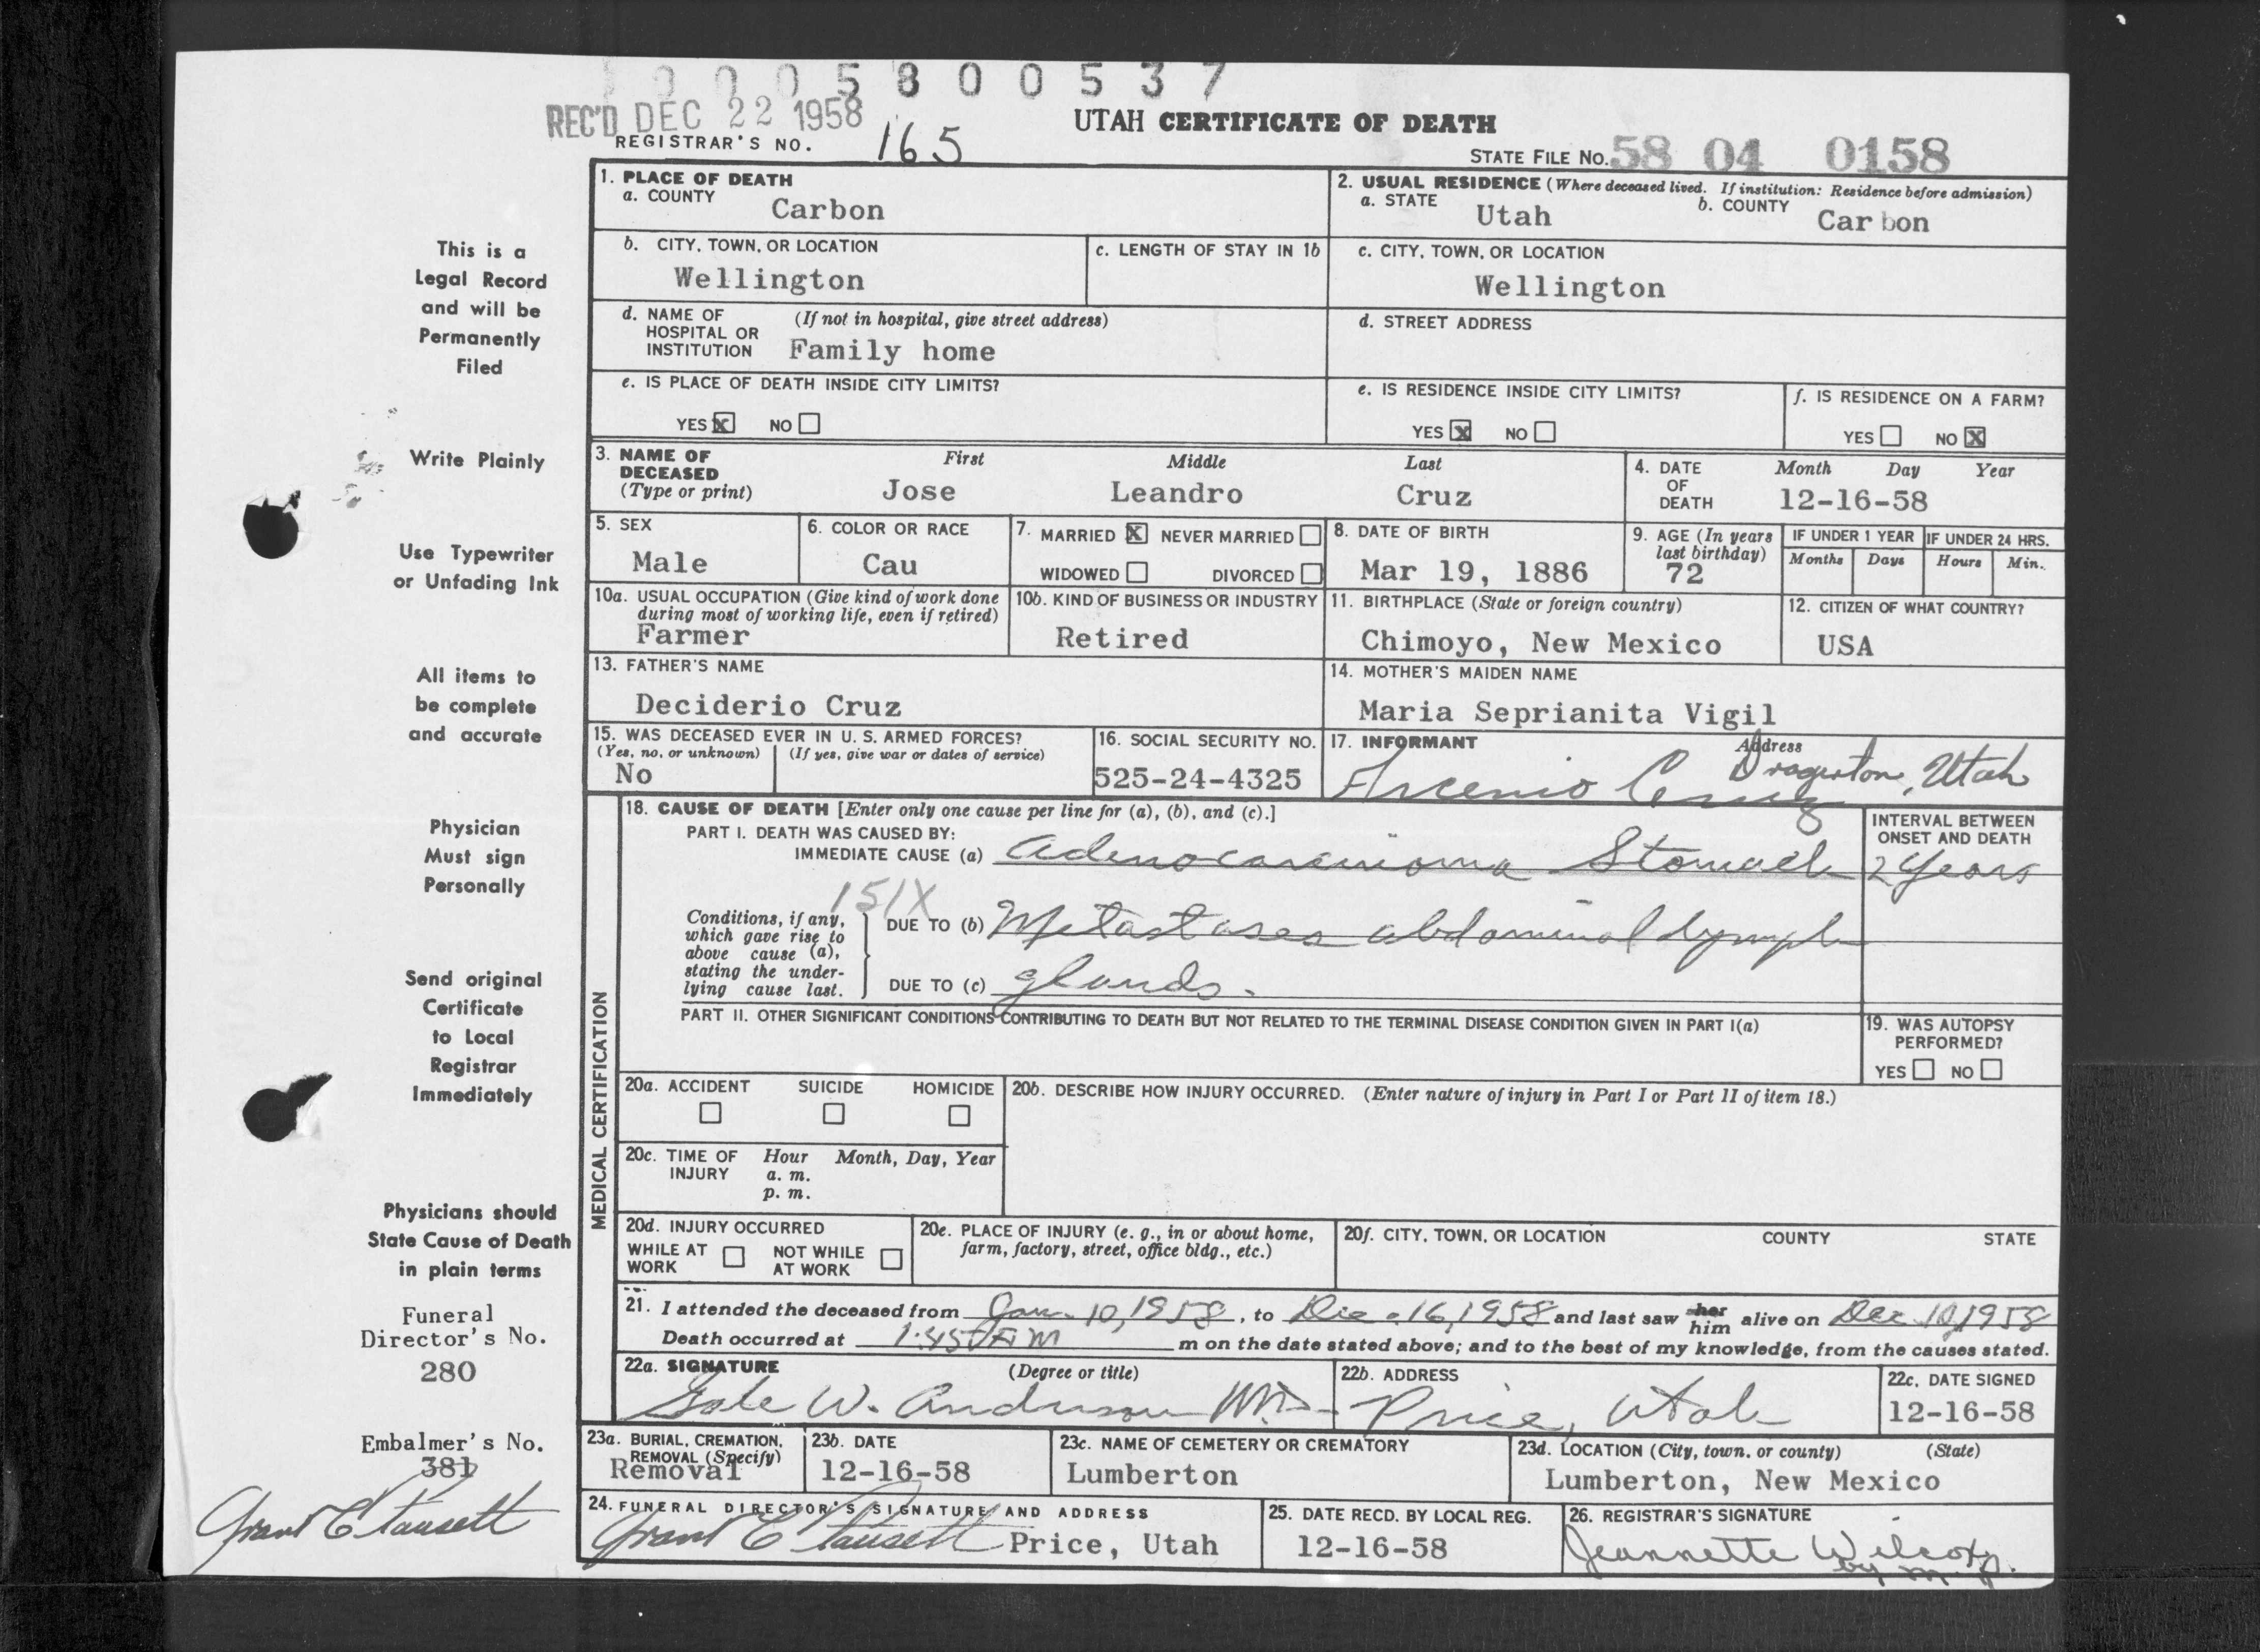 0 0 0 5 8 0 0 5 3 7
REC'D DEC 22 1958
UTAH CERTIFICATE OF DEATH
REGISTRAR'S NO. 165
STATE FILE NO. 58 04 0158
1. PLACE OF DEATH
a. COUNTY Carbon
2. USUAL RESIDENCE (Where deceased lived. If institution: Residence before admission)
a. STATE Utah b. COUNTY Carbon
b. CITY, TOWN, OR LOCATION Wellington
c. LENGTH OF STAY IN 1b
c. CITY, TOWN, OR LOCATION Wellington
d. NAME OF HOSPITAL OR INSTITUTION (If not in hospital, give street address) Family home
d. STREET ADDRESS
e. IS PLACE OF DEATH INSIDE CITY LIMITS?
YES X NO
e. IS RESIDENCE INSIDE CITY LIMITS?
YES X NO
f. IS RESIDENCE ON A FARM?
YES NO X
3. NAME OF DECEASED (Type or print) First Middle Last
Jose Leandro Cruz
4. DATE OF DEATH Month Day Year
12-16-58
5. SEX Male
6. COLOR OR RACE Cau
7. MARRIED X NEVER MARRIED
WIDOWED DIVORCED
8. DATE OF BIRTH Mar 19, 1886
9. AGE (In years last birthday) 72
IF UNDER 1 YEAR Months Days
IF UNDER 24 HRS. Hours Min.
10a. USUAL OCCUPATION (Give kind of work done during most of working life, even if retired)
Farmer
10b. KIND OF BUSINESS OR INDUSTRY
Retired
11. BIRTHPLACE (State or foreign country)
Chimoyo, New Mexico
12. CITIZEN OF WHAT COUNTRY?
USA
13. FATHER'S NAME
Deciderio Cruz
14. MOTHER'S MAIDEN NAME
Maria Seprianita Vigil
15. WAS DECEASED EVER IN U. S. ARMED FORCES?
(Yes, no, or unknown) (If yes, give war or dates of service)
No
16. SOCIAL SECURITY NO.
525-24-4325
17. INFORMANT Address
Arcenio Cruz Dragerton, Utah
MEDICAL CERTIFICATION
18. CAUSE OF DEATH [Enter only one cause per line for (a), (b), and (c).]
PART I. DEATH WAS CAUSED BY:
IMMEDIATE CAUSE (a) Adenocarcinoma Stomach
INTERVAL BETWEEN ONSET AND DEATH
2 Years
151X
Conditions, if any, which gave rise to above cause (a), stating the underlying cause last.
DUE TO (b) Metastases abdominal lymph
DUE TO (c) glands.
PART II. OTHER SIGNIFICANT CONDITIONS CONTRIBUTING TO DEATH BUT NOT RELATED TO THE TERMINAL DISEASE CONDITION GIVEN IN PART I(a)
19. WAS AUTOPSY PERFORMED?
YES NO
20a. ACCIDENT SUICIDE HOMICIDE
20b. DESCRIBE HOW INJURY OCCURRED. (Enter nature of injury in Part I or Part II of item 18.)
20c. TIME OF INJURY Hour Month, Day, Year
a. m.
p. m.
20d. INJURY OCCURRED
WHILE AT WORK NOT WHILE AT WORK
20e. PLACE OF INJURY (e. g., in or about home, farm, factory, street, office bldg., etc.)
20f. CITY, TOWN, OR LOCATION COUNTY STATE
21. I attended the deceased from Jan. 10, 1958, to Dec. 16, 1958 and last saw her him alive on Dec 10, 1958
Death occurred at 1:45 A M m on the date stated above; and to the best of my knowledge, from the causes stated.
22a. SIGNATURE (Degree or title)
Gale W. Anderson M.D.
22b. ADDRESS
Price, Utah
22c. DATE SIGNED
12-16-58
23a. BURIAL, CREMATION, REMOVAL (Specify)
Removal
23b. DATE
12-16-58
23c. NAME OF CEMETERY OR CREMATORY
Lumberton
23d. LOCATION (City, town, or county) (State)
Lumberton, New Mexico
24. FUNERAL DIRECTOR'S SIGNATURE AND ADDRESS
Grant C Fausett Price, Utah
25. DATE RECD. BY LOCAL REG.
12-16-58
26. REGISTRAR'S SIGNATURE
Jeannette Wilcox
by
This is a
Legal Record
and will be
Permanently
Filed
Write Plainly
Use Typewriter
or Unfading Ink
All items to
be complete
and accurate
Physician
Must sign
Personally
Send original
Certificate
to Local
Registrar
Immediately
Physicians should
State Cause of Death
in plain terms
Funeral
Director's No.
280
Embalmer's No.
381
Grant C Fausett